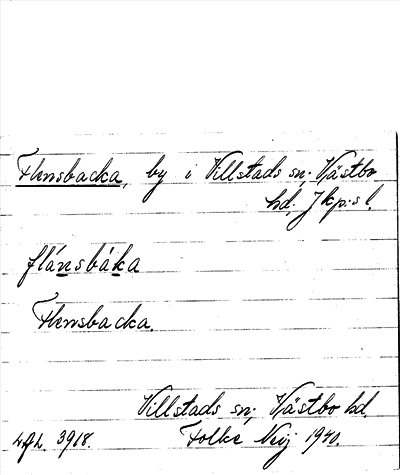 Flensbacka, by i Villstads sn; Västbo
hd. Jkp:s l.
flánsbáka
Flensbacka.
Villstads sn; Västbo hd.
3918. Folke 1940.